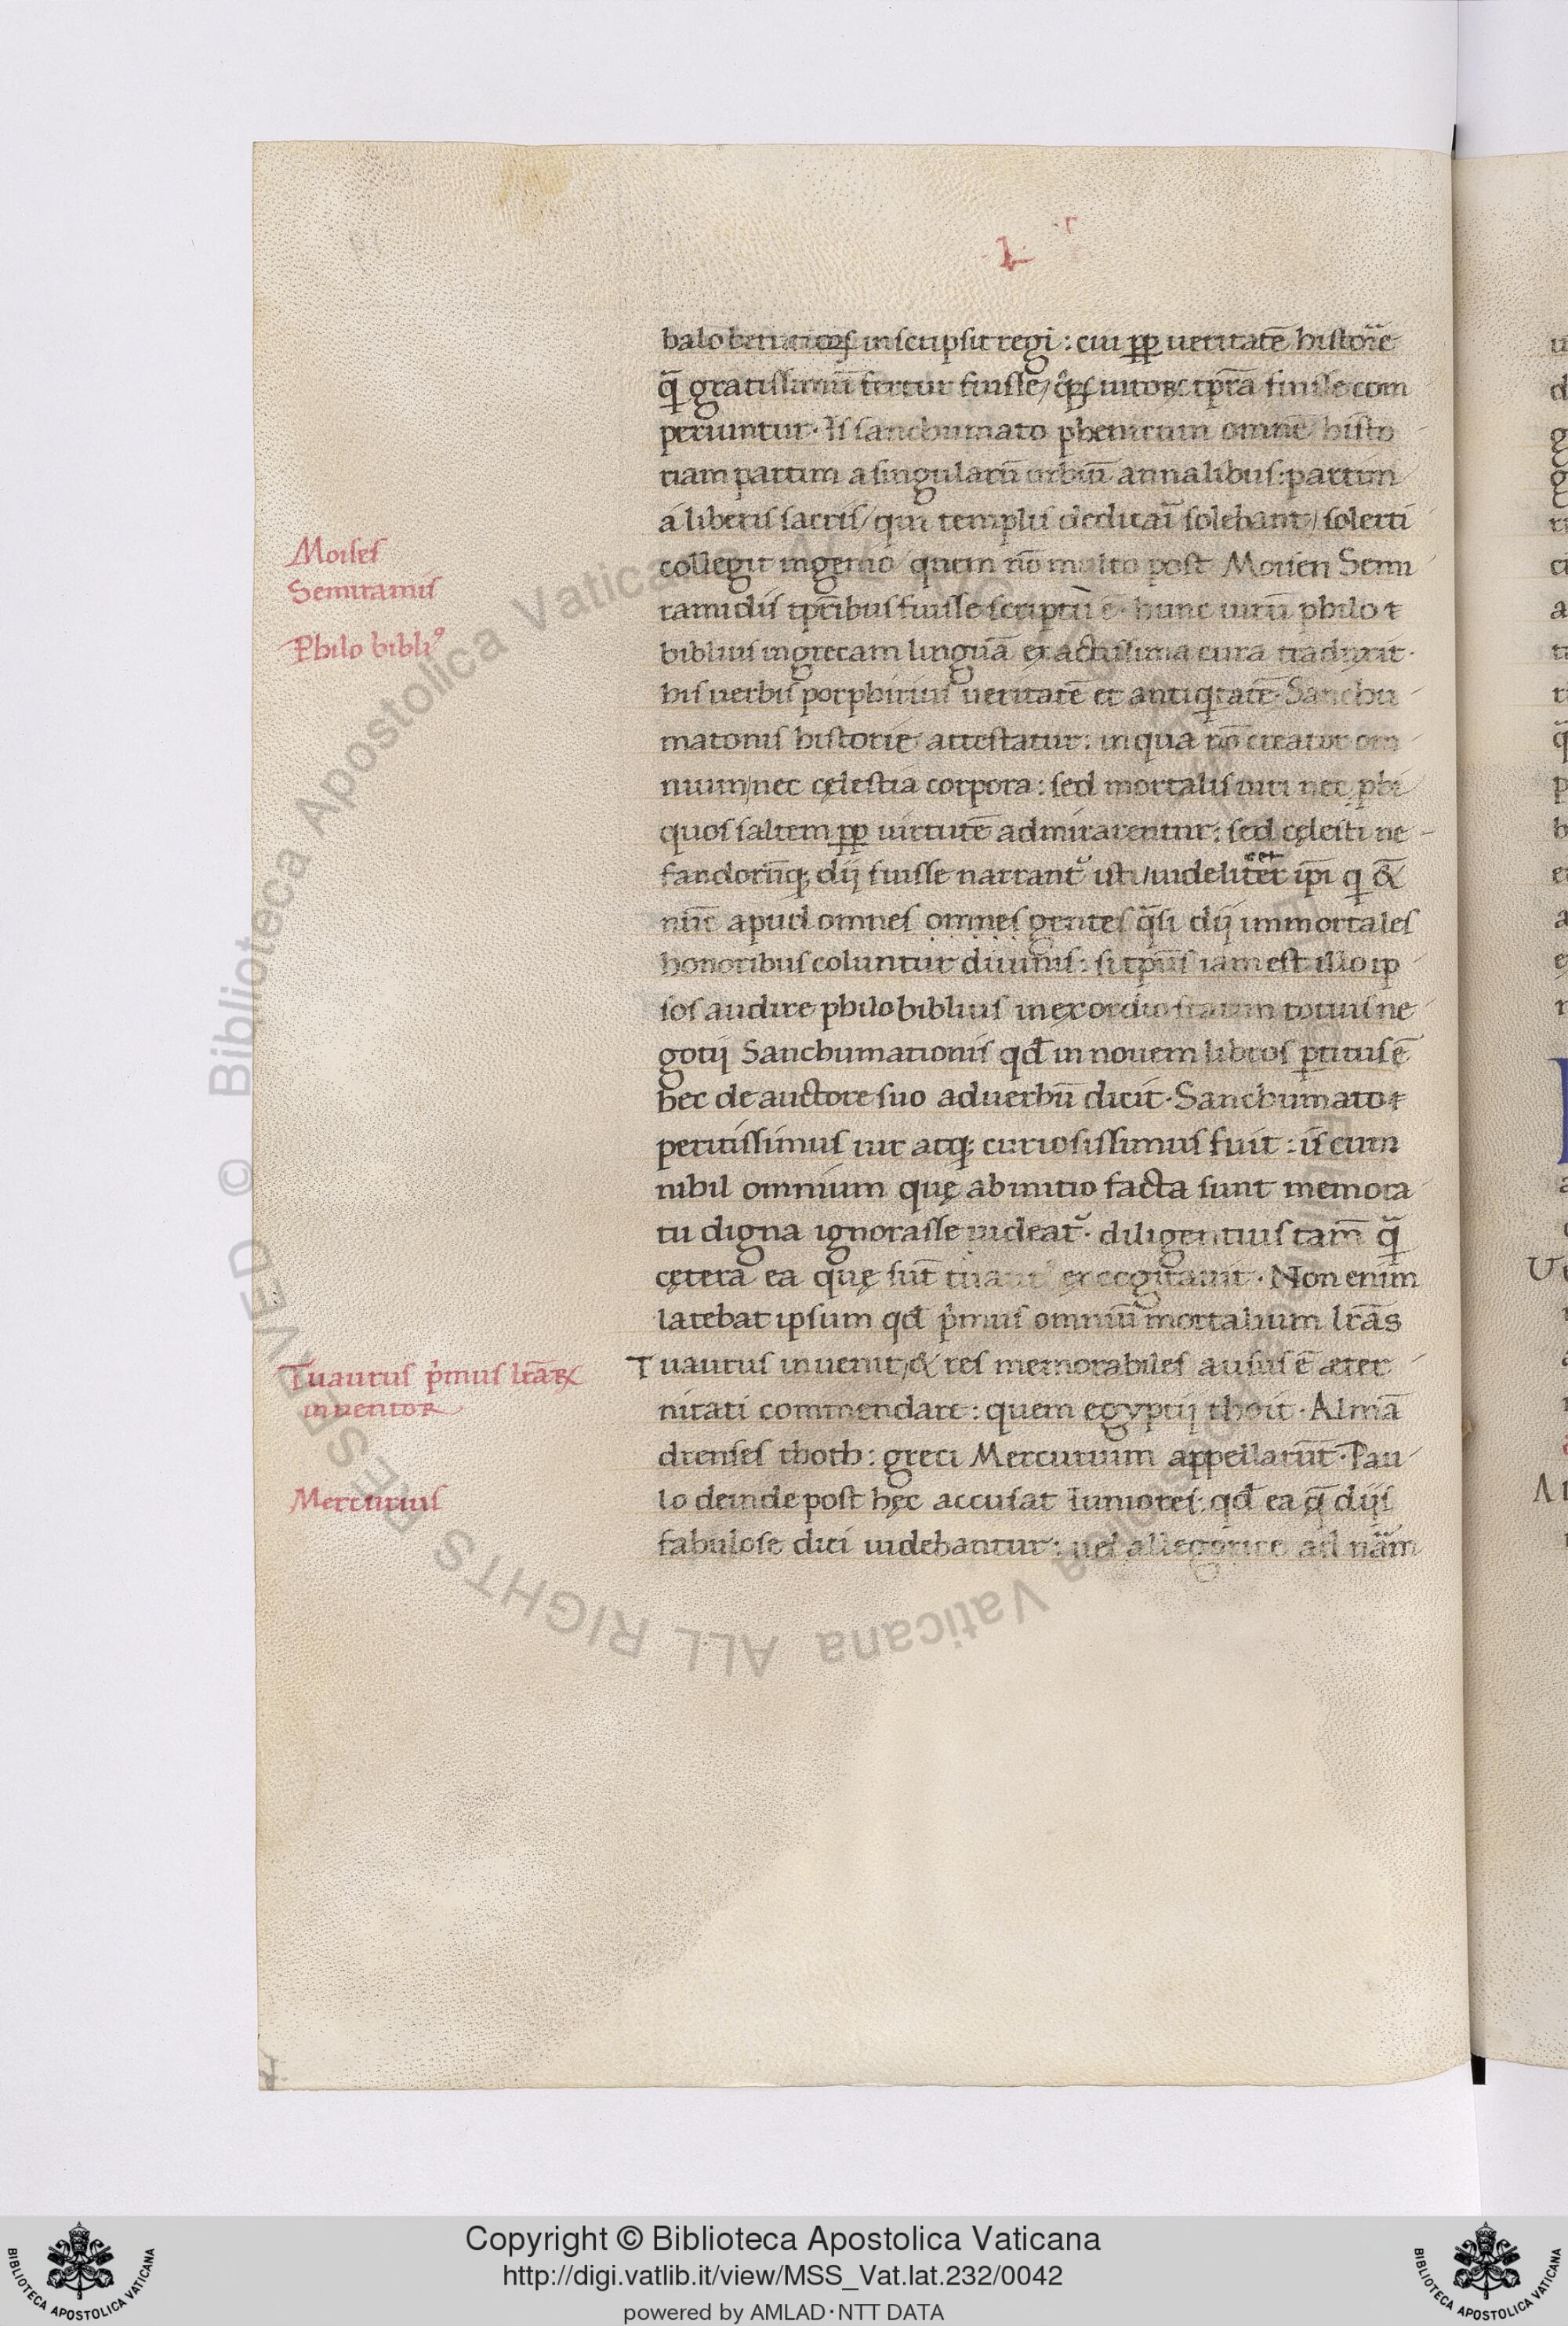 L
balo beritiorꝝ inscripsit regi : cui ꝓp ueritatē histor̄ie
q̄ gratissimū fertur fuisse / qͥ uitoꝝ tp̄ra fuisse com
periuntur · Is sanchumato phenicum omnē histo
riam partim a singularū urbiū annalibus : partim
a liberis sacris / qui templis dedicaī solebant / solerti
collegit ingenio / quem nō multo post Moisen Semi
ramidis tp̄ribus fuisse scriptū ē · hunc uirū philo ⁊
biblius in grecam linguā exactissima cura traduxit ·
his uerbis porphirius ueritatē et antiqͥtatē Sanchu
matonis historie attestatur : in qua nō creator om
nium / nec cęlestia corpora : sed mortalis uiri nec phi
quos saltem ꝓp uirtutē admirarentur : sed cęlesti ne
fandorūq; dij fuisse narrantᷣ isti / uideliter ip̄i q &
nūc apud omnes omnes gentes q̄si dij immortales
honoribus coluntur diuinis : si tp̄us iam est illo ip
sos audire philo biblius in exordio statim totius ne
gotij Sanchumationis qđ in nouem libros ꝑtitus ē
hec de auctore suo ad uerbū dicit · Sanchumato ⁊
peritissimus uir atq; curiosissimus fuit : is cum
nihil omnium quę ab initio facta sunt memora
tu digna ignorasse uideatᷣ · diligentius tam̄ q̄
cętera ea quę sūt excogitauit · Non enim
latebat ipsum qđ pͥmus omniū mortalium lr̄as
Tuautus inuenit / & res memorabiles ausus ē æter
nitati commendare : quem egyptij thoit · Alexā
drenses thoth : greci Mercurium appellarūt · Pau
lo deinde post hęc accusat Iuniores : qđ ea q̄ dijs
fabulose dici uidebantur : uel allegorice ad nām
Moises
Semiramis
Philo bibliꝰ
Tuautus pͥmus lr̄aꝝ
inuentor
Mercurius
© Biblioteca Apostolica Vaticana ALL RIGHTS RESERVED
Copyright © Biblioteca Apostolica Vaticana
http://digi.vatlib.it/view/MSS_Vat.lat.232/0042
powered by AMLAD·NTT DATA
BIBLIOTECA APOSTOLICA VATICANA
BIBLIOTECA APOSTOLICA VATICANA